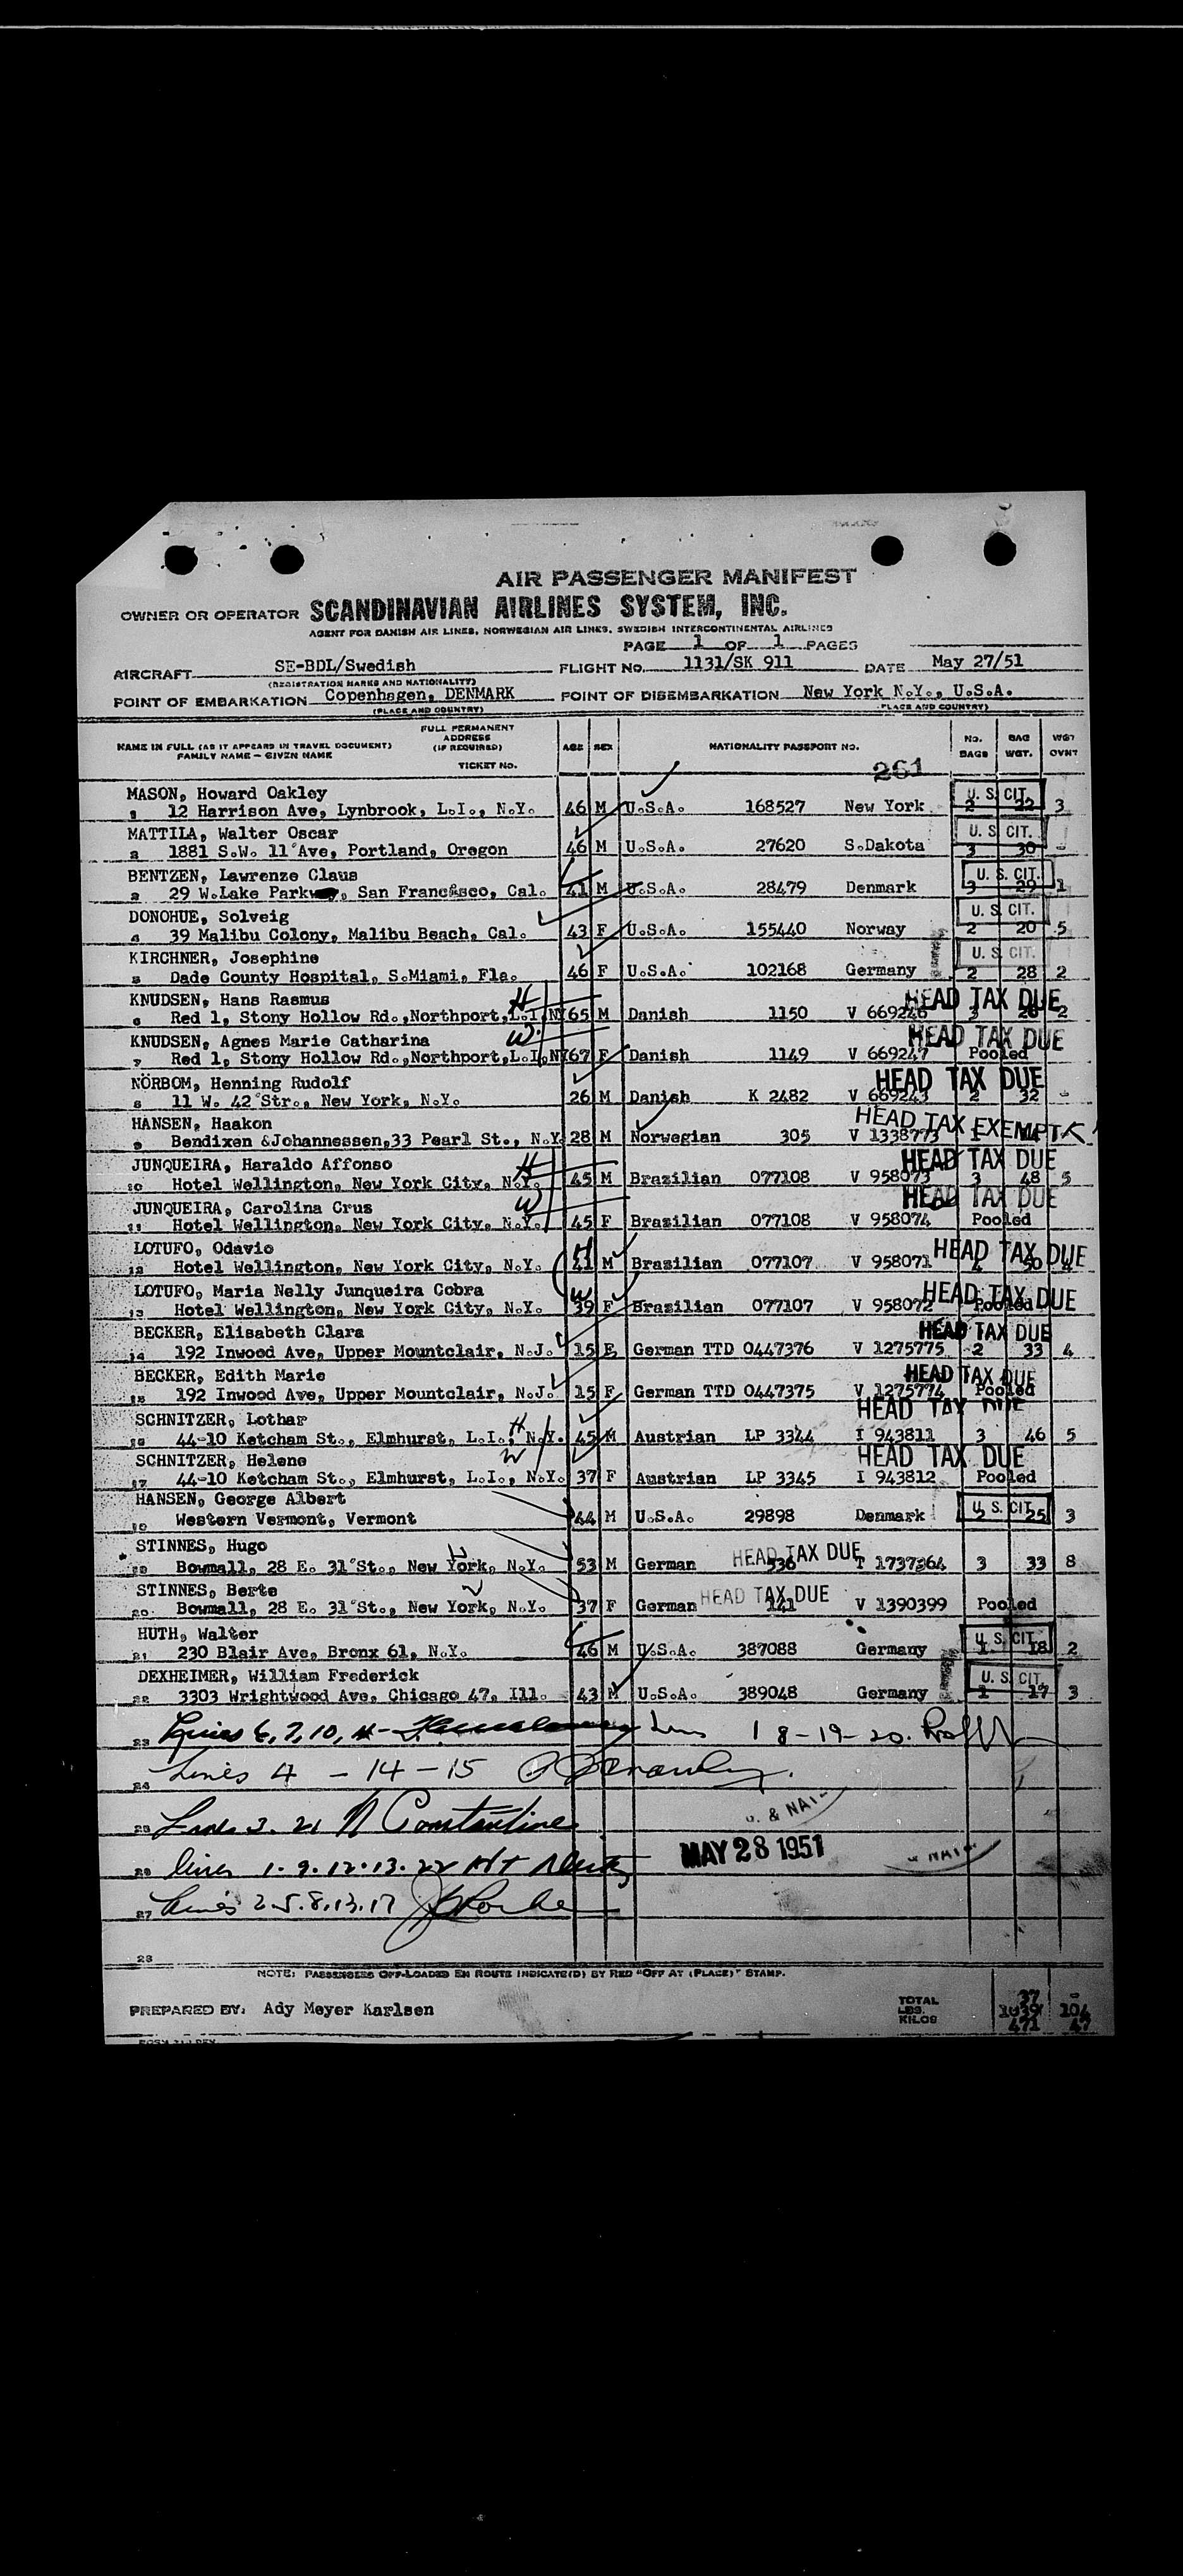 AIR PASSENGER MANIFEST
OWNER OR OPERATOR SCANDINAVIAN AIRLINES SYSTEM, INC.
AGENT FOR DANISH AIR LINES, NORWEGIAN AIR LINES, SWEDISH INTERCONTINENTAL AIRLINES
PAGE 1 OF 1 PAGES
AIRCRAFT SE-BDL/Swedish FLIGHT NO. 1131/SK 911 DATE May 27/51
(REGISTRATION MARKS AND NATIONALITY)
POINT OF EMBARKATION Copenhagen, DENMARK POINT OF DISEMBARKATION New York N.Y., U.S.A.
(PLACE AND COUNTRY) (PLACE AND COUNTRY)
NAME IN FULL (AS IT APPEARS IN TRAVEL DOCUMENT) FAMILY NAME — GIVEN NAME FULL PERMANENT ADDRESS (IF REQUIRED) TICKET NO. AGE SEX NATIONALITY PASSPORT NO. NO. BAGS BAG WGT. WGT OVWT
261
MASON, Howard Oakley U. S. CIT.
1 12 Harrison Ave, Lynbrook, L.I., N.Y. 46 M U.S.A. 168527 New York 2 22 3
MATTILA, Walter Oscar U. S. CIT.
2 1881 S.W. 11 Ave, Portland, Oregon 46 M U.S.A. 27620 S.Dakota 3 30 -
BENTZEN, Lawrenze Claus U. S. CIT.
3 29 W.Lake Park, San Francisco, Cal. 41 M U.S.A. 28479 Denmark 3 29 1
DONOHUE, Solveig U. S. CIT.
4 39 Malibu Colony, Malibu Beach, Cal. 43 F U.S.A. 155440 Norway 2 20 5
KIRCHNER, Josephine U. S. CIT.
5 Dade County Hospital, S.Miami, Fla. 46 F U.S.A. 102168 Germany 2 28 2
KNUDSEN, Hans Rasmus H HEAD TAX DUE
6 Red 1, Stony Hollow Rd.,Northport,L.I,NY 65 M Danish 1150 V 669246 3 2
KNUDSEN, Agnes Marie Catharina W. HEAD TAX DUE
7 Red 1, Stony Hollow Rd.,Northport,L.I,NY 67 F Danish 1149 V 669247 Pooled
NÖRBOM, Henning Rudolf HEAD TAX DUE
8 11 W. 42 Str., New York, N.Y. 26 M Danish K 2482 V 669243 2 32 -
HANSEN, Haakon HEAD TAX EXEMPT
9 Bendixen &Johannessen,33 Pearl St., N.Y. 28 M Norwegian 305 V 1338773
JUNQUEIRA, Haraldo Affonso H HEAD TAX DUE
10 Hotel Wellington, New York City, N.Y. 45 M Brazilian 077108 V 958073 3 48 5
JUNQUEIRA, Carolina Crus W HEAD TAX DUE
11 Hotel Wellington, New York City, N.Y. 45 F Brasilian 077108 V 958074 Pooled
LOTUFO, Odavio H HEAD TAX DUE
12 Hotel Wellington, New York City, N.Y. 41 M Brasilian 077107 V 958071 4 50
LOTUFO, Maria Nelly Junqueira Cobra W HEAD TAX DUE
13 Hotel Wellington, New York City, N.Y. 39 F Brasilian 077107 V 958072 Pooled
BECKER, Elisabeth Clara HEAD TAX DUE
14 192 Inwood Ave, Upper Mountclair, N.J. 15 F German TTD 0447376 V 1275775 2 33 4
BECKER, Edith Marie HEAD TAX DUE
15 192 Inwood Ave, Upper Mountclair, N.J. 15 F German TTD 0447375 V 1275774 Pooled
SCHNITZER, Lothar H HEAD TAX DUE
16 44-10 Ketcham St., Elmhurst, L.I., N.Y. 45 M Austrian LP 3344 I 943811 3 46 5
SCHNITZER, Helene W HEAD TAX DUE
17 44-10 Ketcham St., Elmhurst, L.I., N.Y. 37 F Austrian LP 3345 I 943812 Pooled
HANSEN, George Albert U. S. CIT.
18 Western Vermont, Vermont 44 M U.S.A. 29898 Denmark 2 25 3
STINNES, Hugo H HEAD TAX DUE
19 Bowmall, 28 E. 31 St., New York, N.Y. 53 M German 536 T 1737364 3 33 8
STINNES, Berte W HEAD TAX DUE
20 Bowmall, 28 E. 31 St., New York, N.Y. 37 F German 141 V 1390399 Pooled
HUTH, Walter U. S. CIT.
21 230 Blair Ave, Bronx 61, N.Y. 46 M U.S.A. 387088 Germany 1 18 2
DEXHEIMER, William Frederick U. S. CIT.
22 3303 Wrightwood Ave, Chicago 47, Ill. 43 M U.S.A. 389048 Germany 1 17 3
23 Lines 6, 7, 10, 11 - Lines 18-19-20.
24 Lines 4 - 14 - 15
25 Lines 3. 21 N Constantine
& NAT
MAY 28 1951
26 lines 1. 9. 12. 13. 22
27 Lines 2.5.8.13.17
28
NOTE: PASSENGERS OFF-LOADED EN ROUTE INDICATE(D) BY RED "OFF AT (PLACE)" STAMP.
PREPARED BY: Ady Meyer Karlsen TOTAL 37 -
LBS. 1039 104
KILOS 471 47